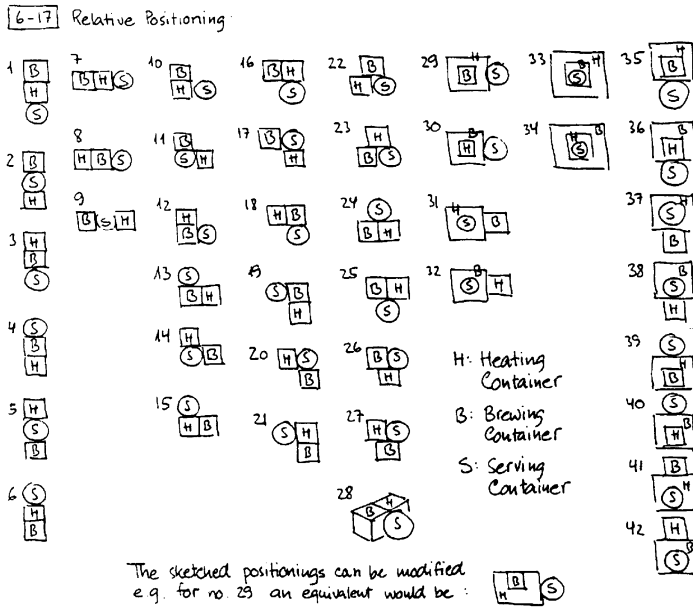 6-17 Relative Positioning
1
B
H
S
2
B
S
H
3
H
B
S
4
S
B
H
5
H
S
B
6
S
H
B
7
B H S
8
H B S
9
B S H
10
B
H S
11
B
S H
12
H
B S
13
S
B H
14
H
S B
15
S
H B
16
B H
S
17
B S
H
18
H B
S
19
S B
H
20
H S
B
21
S H
B
22
B
H S
23
H
B S
24
S
B H
25
B H
S
26
B S
H
27
H S
B
28
B H
S
29
H
B S
30
B
H S
31
H
S B
32
B
S H
33
B H
S
34
H B
S
35
H
B
S
36
B
H
S
37
H
S
B
38
B
S
H
39
S
H
B
40
S
B
H
41
B
S H
42
H
S B
H: Heating
Container
B: Brewing
Container
S: Serving
Container
The sketched positionings can be modified
e.g. for no. 29 an equivalent would be :
B
H S